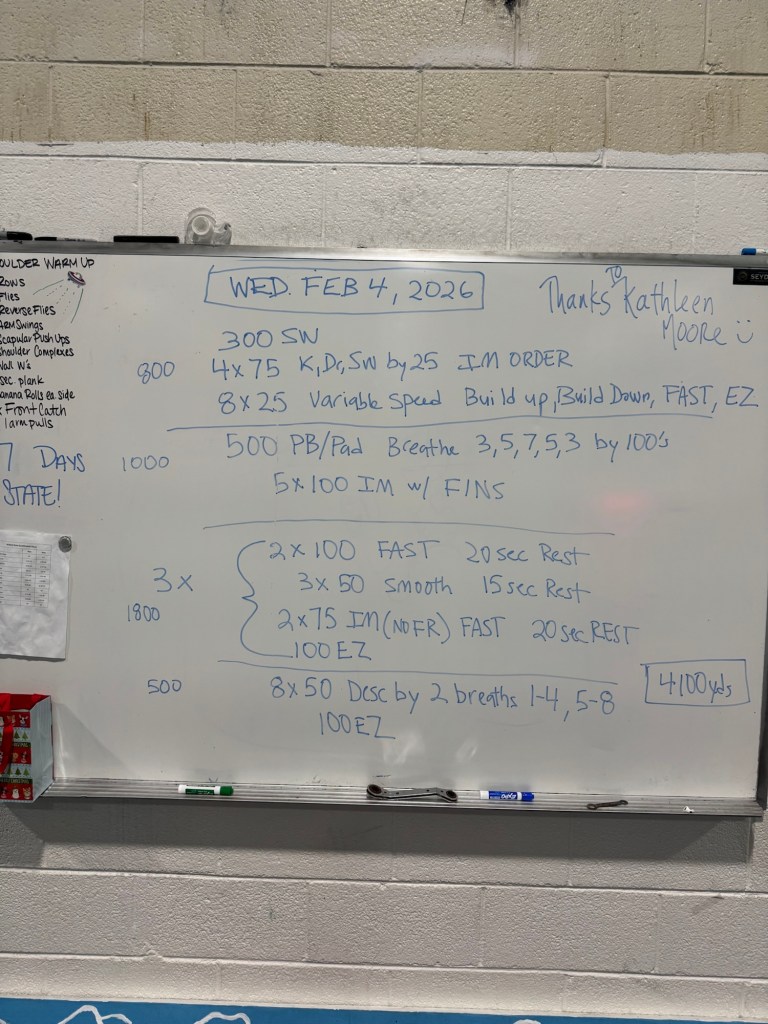 OULDER WARM UP
ROWS
Flies
Reverse Flies
ARM Swings
scapular Push Ups
shoulder Complexes
Wall W's
sec. plank
anana Rolls ea. side
Front Catch
1 arm pulls
7 DAYS
STATE!
WED. FEB 4, 2026
Thanks TO Kathleen
MOORE
SEYD
300 SW
800 4x75 K, Dr, SW by 25 IM ORDER
8x25 Variable Speed Build up, Build Down, FAST, EZ
1000 500 PB/Pad Breathe 3,5,7,5,3 by 100's
5x100 IM w/ FINS
3x
1800
2x100 FAST 20 sec Rest
3x50 Smooth 15 sec Rest
2x75 IM (NO FR) FAST 20 sec REST
100 EZ
500 8x50 Desc by 2 breaths 1-4, 5-8
100 EZ
4100 yds
EXPO